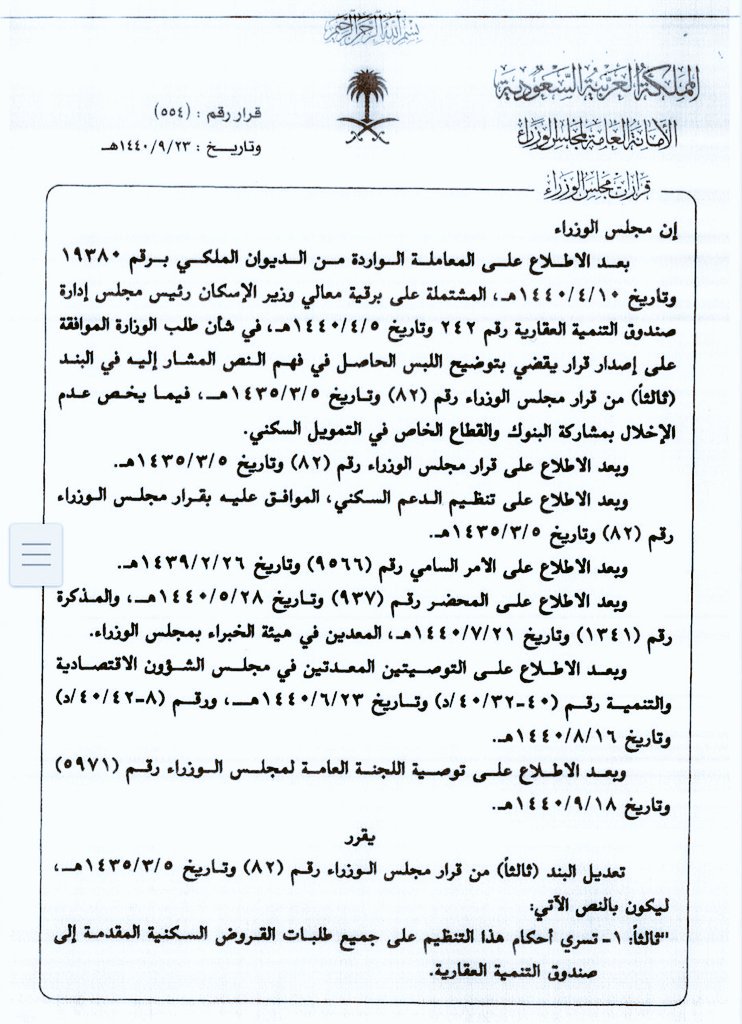 بسم الله الرحمن الرحيم
المملكة العربية السعودية
الأمانة العامة لمجلس الوزراء
قرار رقم : (٥٥٤)
وتاريخ : ١٤٤٠/٩/٢٣هـ
قرارات مجلس الوزراء
إن مجلس الوزراء
بعد الاطلاع على المعاملة الواردة من الديوان الملكي برقم ١٩٣٨٠
وتاريخ ١٤٤٠/٤/١٠هـ، المشتملة على برقية معالي وزير الإسكان رئيس مجلس إدارة
صندوق التنمية العقارية رقم ٢٤٢ وتاريخ ١٤٤٠/٤/٥هـ، في شأن طلب الوزارة الموافقة
على إصدار قرار يقضي بتوضيح اللبس الحاصل في فهم النص المشار إليه في البند
(ثالثاً) من قرار مجلس الوزراء رقم (٨٢) وتاريخ ١٤٣٥/٣/٥هـ، فيما يخص عدم
الإخلال بمشاركة البنوك والقطاع الخاص في التمويل السكني.
وبعد الاطلاع على قرار مجلس الوزراء رقم (٨٢) وتاريخ ١٤٣٥/٣/٥هـ.
وبعد الاطلاع على تنظيم الدعم السكني، الموافق عليه بقرار مجلس الوزراء
رقم (٨٢) وتاريخ ١٤٣٥/٣/٥هـ.
وبعد الاطلاع على الأمر السامي رقم (٩٥٦٦) وتاريخ ١٤٣٩/٢/٢٦هـ.
وبعد الاطلاع على المحضر رقم (٩٣٧) وتاريخ ١٤٤٠/٥/٢٨هـ، والمذكرة
رقم (١٣٤١) وتاريخ ١٤٤٠/٧/٢١هـ، المعدين في هيئة الخبراء بمجلس الوزراء.
وبعد الاطلاع على التوصيتين المعدتين في مجلس الشؤون الاقتصادية
والتنمية رقم (٤٠-٤٠/٣٢/د) وتاريخ ١٤٤٠/٦/٢٣هـ، ورقم (٨-٤٠/٤٢/د)
وتاريخ ١٤٤٠/٨/١٦هـ.
وبعد الاطلاع على توصية اللجنة العامة لمجلس الوزراء رقم (٥٩٧١)
وتاريخ ١٤٤٠/٩/١٨هـ.
يقرر
تعديل البند (ثالثاً) من قرار مجلس الوزراء رقم (٨٢) وتاريخ ١٤٣٥/٣/٥هـ،
ليكون بالنص الآتي:
"ثالثاً: ١- تسري أحكام هذا التنظيم على جميع طلبات القروض السكنية المقدمة إلى
صندوق التنمية العقارية.